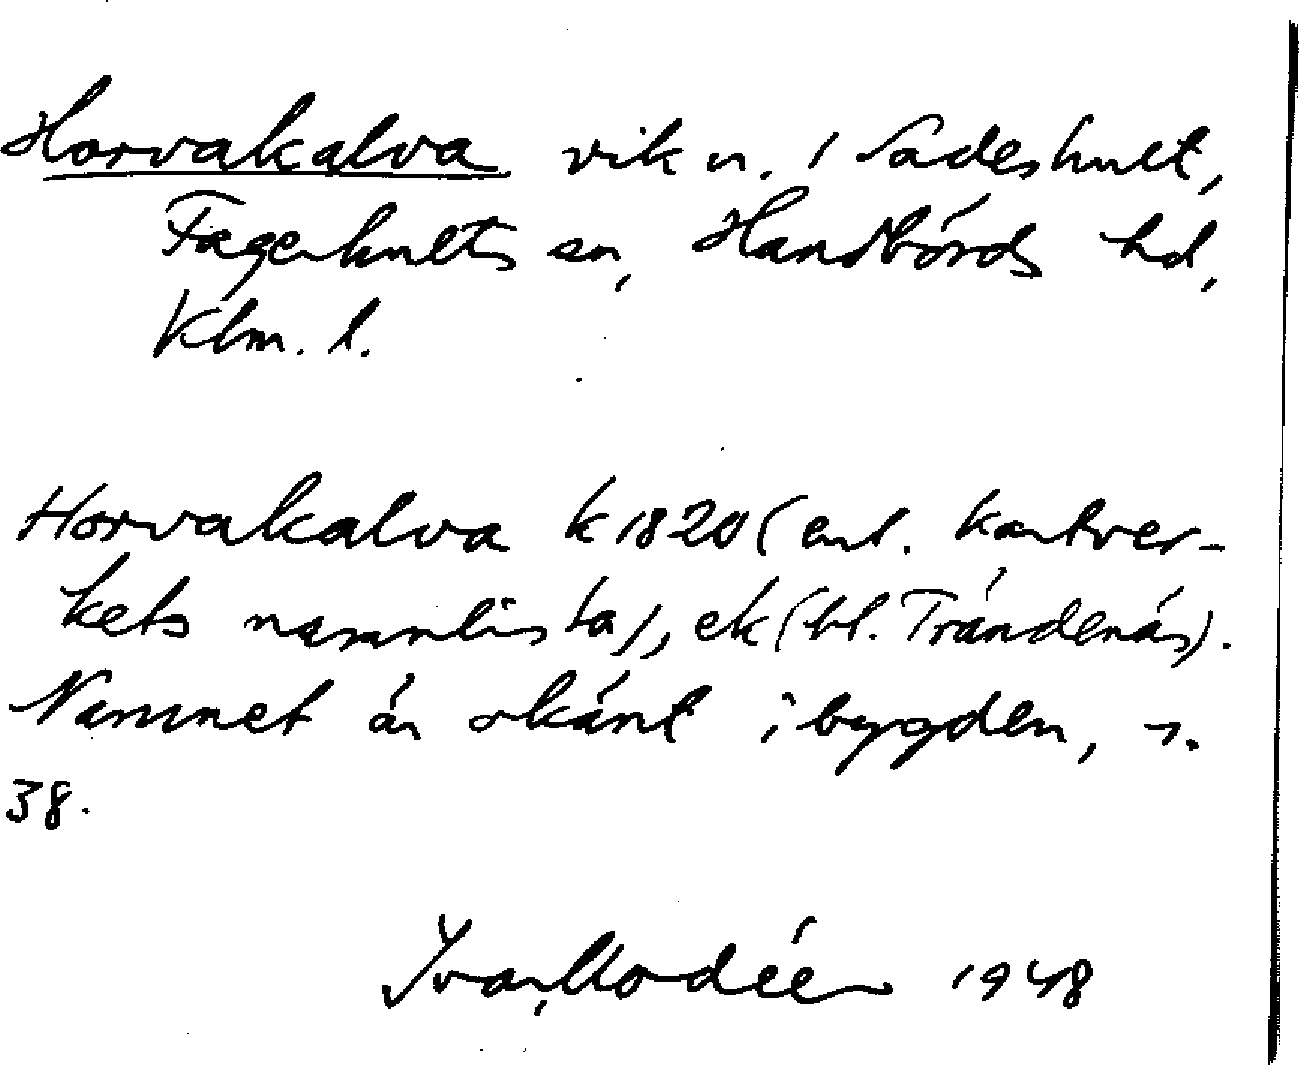 Horvakalva vik n. i Sadeshult,
Fagerhults sn, Handbörds hd,
Klm. l.
Horvakalva k 1820 (enl. kartver-
kets namnlista), ek (bl. Trändenäs).
Namnet är okänt i bygden, s.
38.
Ivar Modéer 1948